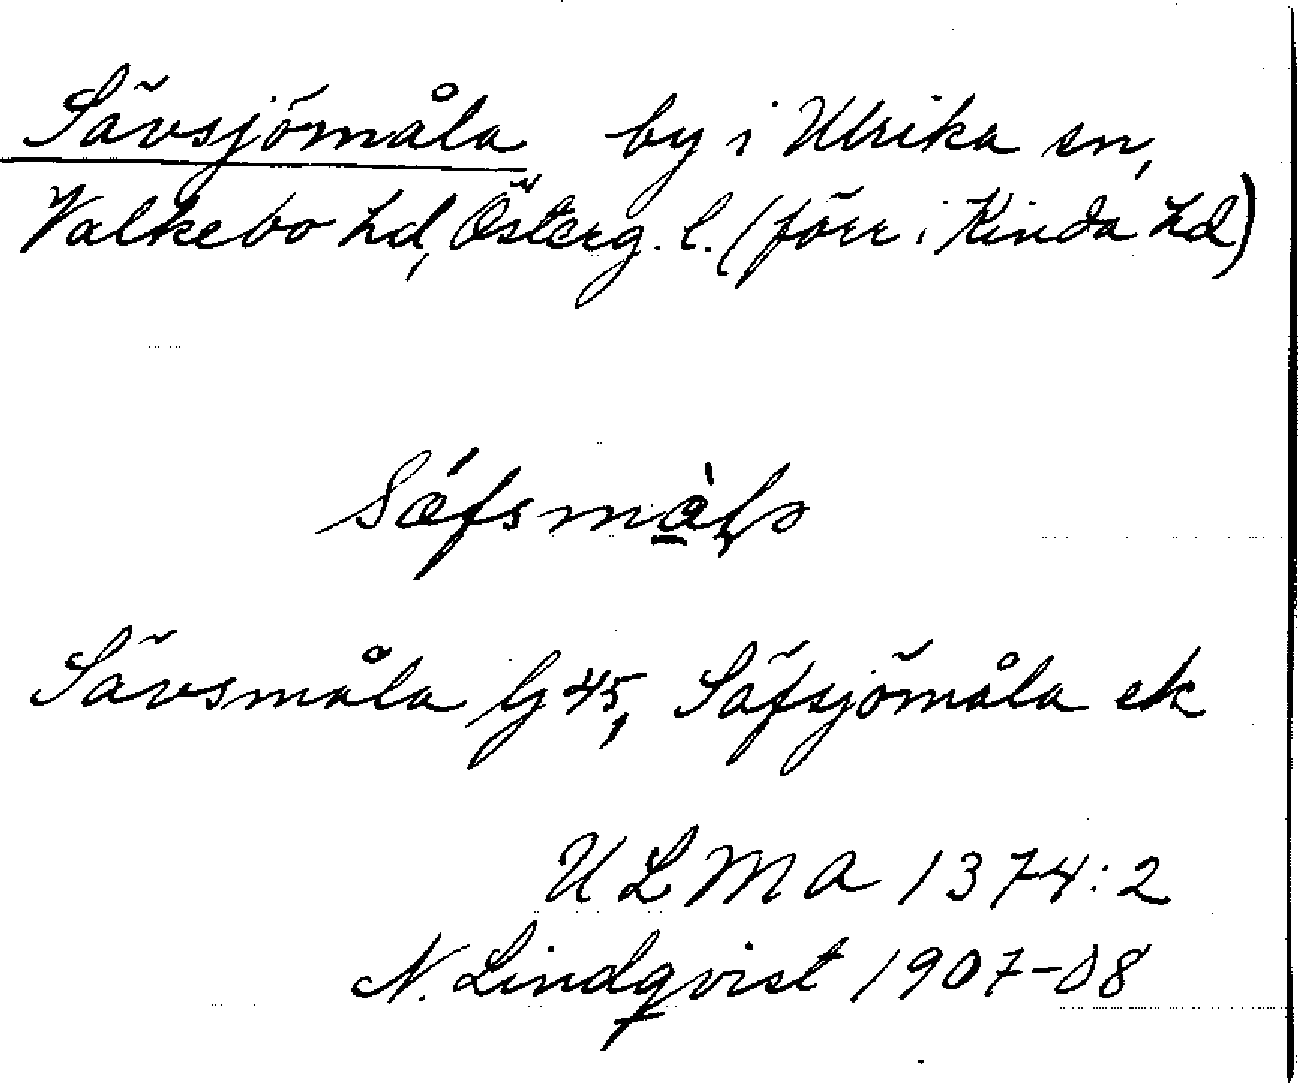 Sävsjömåla by i Ulrika sn,
Valkebo hd, Österg. l. (förr i Kinda hd)
Sävsmåla Gj 45, Säfsjömåla ek
ULMA 1374:2
N. Lindqvist 1907-08